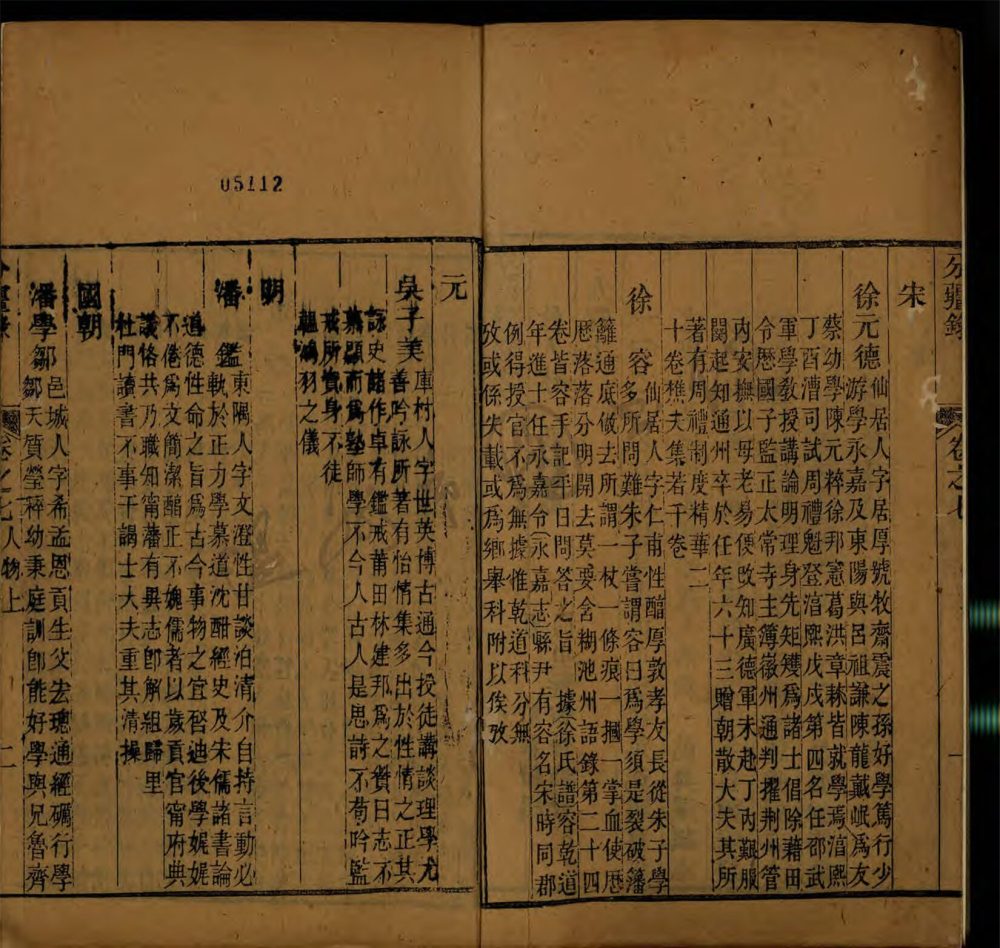 分疆錄
卷之七
一
宋
徐元德仙居人字居厚號牧齋震之孫好學篤行少
游學永嘉及東陽與呂祖謙陳龍戴岷爲友
蔡幼學陳元粹徐邦憲葛洪章棶皆就學焉淳熙
丁酉漕司試周禮魁登淳熙戊戌第四名任邵武
軍學教授講論明理身先矩矱爲諸士倡除藉田
令歷國子監正太常寺主簿徽州通判擢荆州管
內安撫以母老易便改知廣德軍未赴丁內艱服
闋起知通州卒於任年六十三贈朝散大夫其所
著有周禮制度精華二
十卷樵夫集若干卷
徐容仙居人字仁甫性醕厚敦孝友長從朱子學
多所問難朱子嘗謂容曰爲學須是裂破藩
籬通底做去所謂一杖一條痕一摑一掌血使歷
歷落落分明開去莫要含糊池州語錄第二十四
卷皆容手記平日問答之旨 據徐氏譜容乾道
年進士任永嘉令永嘉志縣尹有容名宋時同郡
例得授官不爲無據惟乾道科分無
攷或係失載或爲鄉舉科附以俟攷
元
吳子美庫村人字世英博古通今授徒講談理學尤
善吟詠所著有怡情集多出於性情之正其
詠史諸作卓有鑑戒莆田林建邦爲之賛日志不
慕顯而爲塾師學不今人古人是思詩不苟吟監
戒所寓身不徒
韞鴻羽之儀
明
潘鑑東隅人字文澄性甘談泊清介自持言動必
軌於正力學慕道沈酣經史及宋儒諸書論
道德性命之旨爲古今事物之宜啓迪後學娓娓
不倦爲文簡潔醕正不媿儒者以歲貢官甯府典
議恪共乃職知甯藩有異志卽解組歸里
杜門讀書不事干謁士大夫重其清操
國朝
潘學鄒邑城人字希孟恩貢生父去璁通經礪行學
鄒天質瑩粹幼秉庭訓卽能好學與兄魯齊
分疆錄
卷之七人物上
二
05112